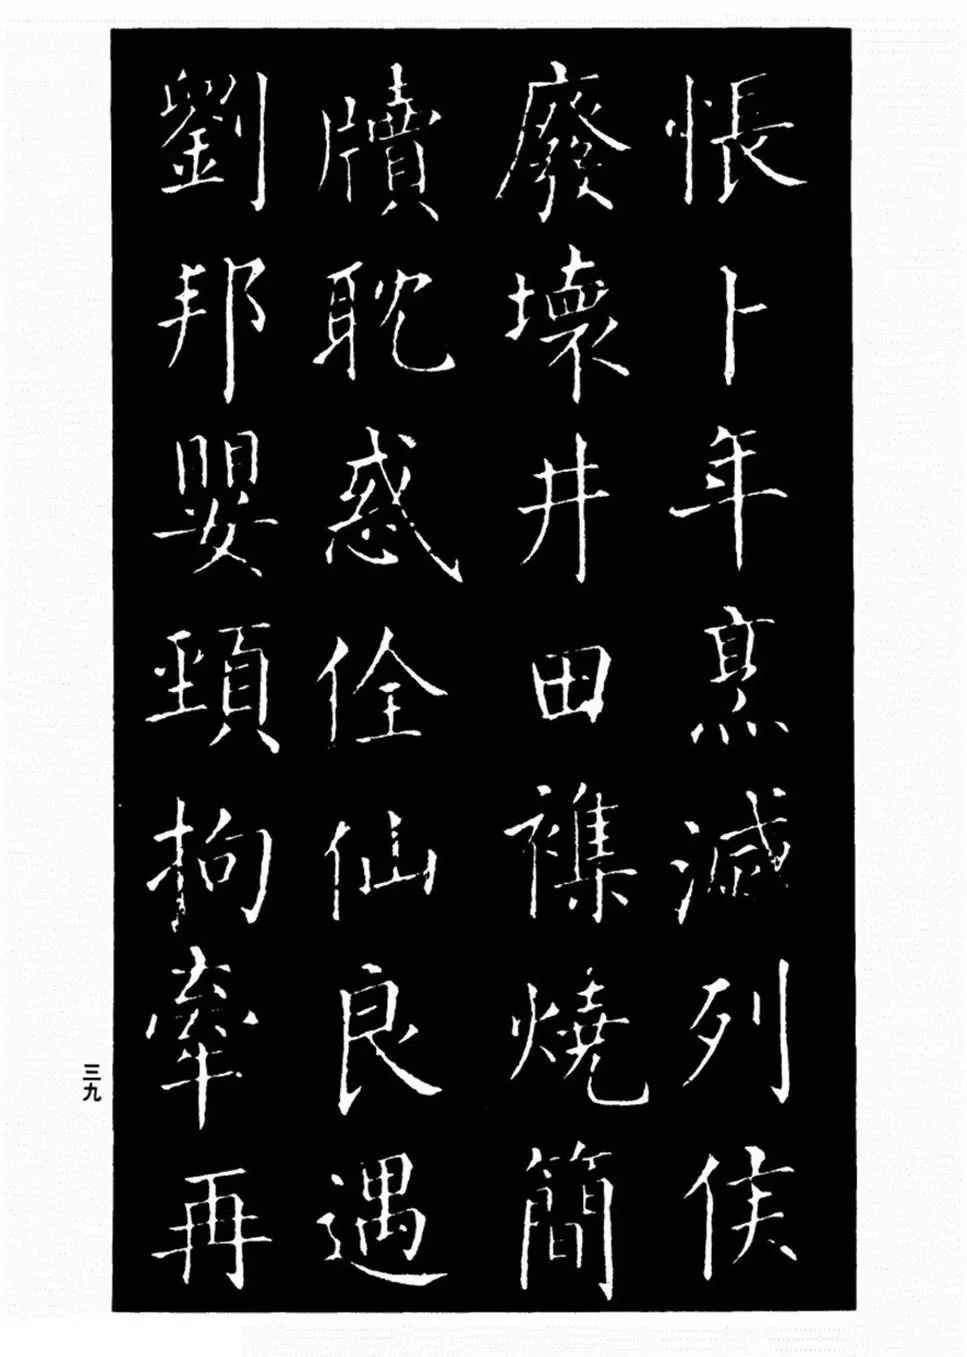 悵卜年烹滅列侯
廢壞井田襍燒簡
牘耽惑佺仙良遇
劉邦嬰頸拘牽再
三九